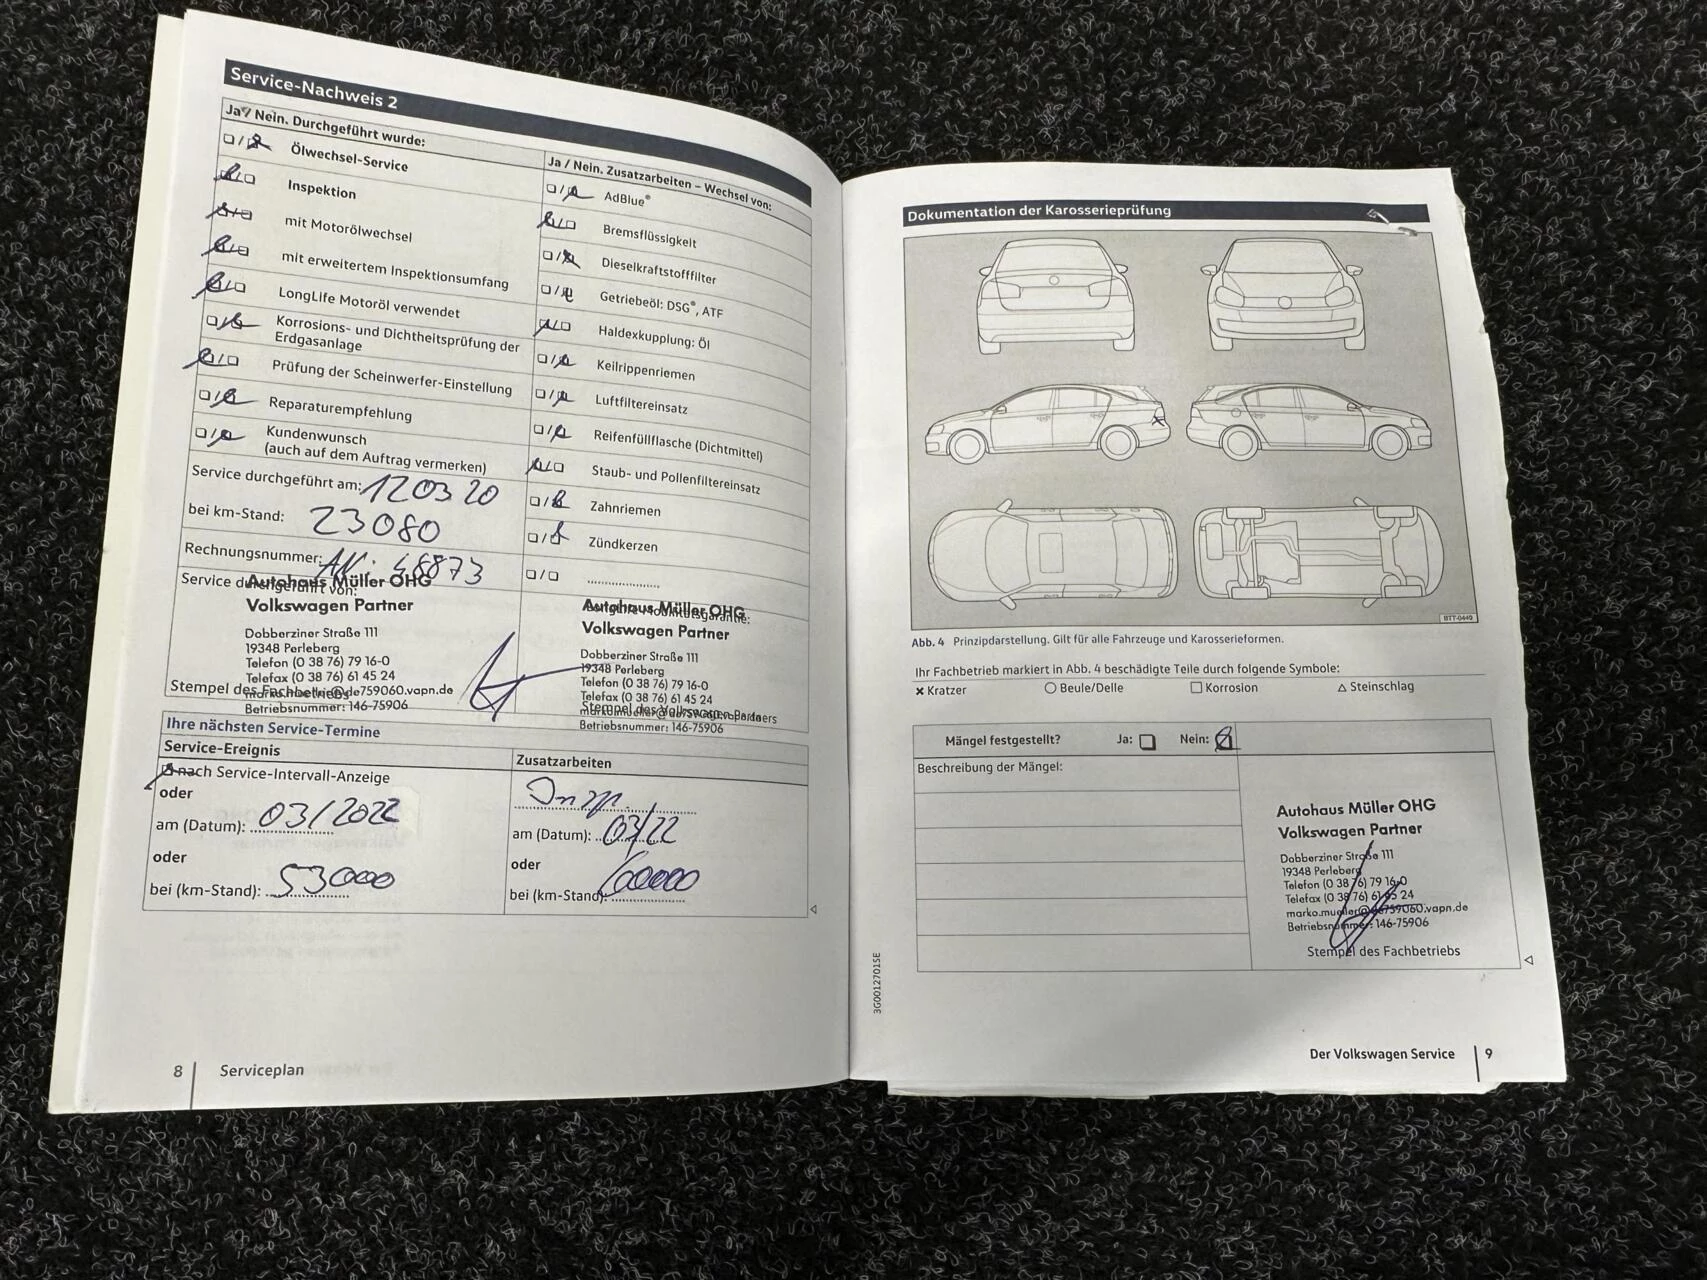 Service-Nachweis 2
Ja / Nein. Durchgeführt wurde:
Ölwechsel-Service
Inspektion
mit Motorölwechsel
mit erweitertem Inspektionsumfang
LongLife Motoröl verwendet
Korrosions- und Dichtheitsprüfung der
Erdgasanlage
Prüfung der Scheinwerfer-Einstellung
Reparaturempfehlung
Kundenwunsch
(auch auf dem Auftrag vermerken)
Service durchgeführt am: 120320
bei km-Stand: 23080
Rechnungsnummer:
Service durchgeführt von:
Autohaus Müller OHG
Volkswagen Partner
Dobberziner Straße 111
19348 Perleberg
Telefon (0 38 76) 79 16-0
Telefax (0 38 76) 61 45 24
Stempel des Fachbetriebs
Betriebsnummer: 146-75906
Ja / Nein. Zusatzarbeiten – Wechsel von:
AdBlue®
Bremsflüssigkeit
Dieselkraftstofffilter
Getriebeöl: DSG®, ATF
Haldexkupplung: Öl
Keilrippenriemen
Luftfiltereinsatz
Reifenfüllflasche (Dichtmittel)
Staub- und Pollenfiltereinsatz
Zahnriemen
Zündkerzen
Autohaus Müller OHG
Volkswagen Partner
Dobberziner Straße 111
19348 Perleberg
Telefon (0 38 76) 79 16-0
Telefax (0 38 76) 61 45 24
Stempel des Volkswagen Partners
Betriebsnummer: 146-75906
Ihre nächsten Service-Termine
Service-Ereignis
nach Service-Intervall-Anzeige
oder
am (Datum): 03/2022
oder
bei (km-Stand): 53000
Zusatzarbeiten
Insp.
am (Datum): 03/22
oder
bei (km-Stand): 60000
8 Serviceplan
Dokumentation der Karosserieprüfung
BTT-0449
Abb. 4 Prinzipdarstellung. Gilt für alle Fahrzeuge und Karosserieformen.
Ihr Fachbetrieb markiert in Abb. 4 beschädigte Teile durch folgende Symbole:
Kratzer Beule/Delle Korrosion Steinschlag
Mängel festgestellt? Ja: Nein:
Beschreibung der Mängel:
Autohaus Müller OHG
Volkswagen Partner
Dobberziner Straße 111
19348 Perleberg
Telefon (0 38 76) 79 16-0
Telefax (0 38 76) 61 45 24
marko.mueller@de759060.vapn.de
Betriebsnummer: 146-75906
Stempel des Fachbetriebs
3G0012701SE
Der Volkswagen Service 9